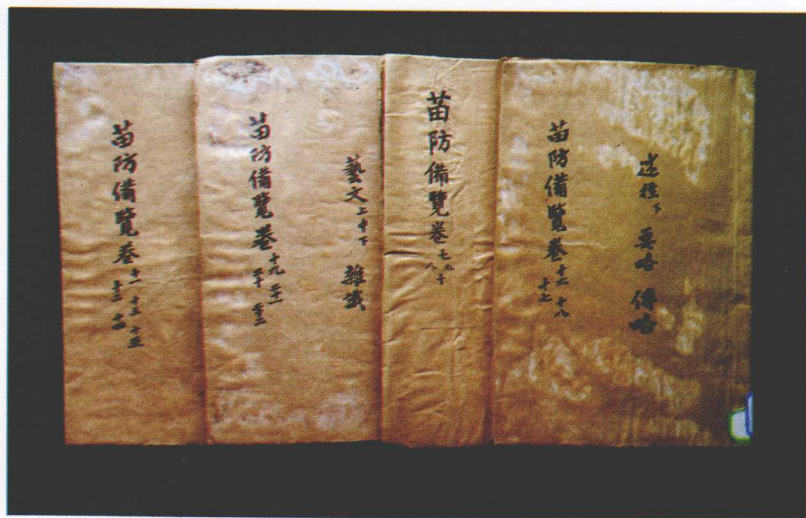 述徃下 要略 傳略
苗防備覽卷十六 十八
十七
苗防備覽卷七 九
八 十
藝文上中下 雜識
苗防備覽卷十九 二十一
二十 二十二
苗防備覽卷十一 十三 十五
十二 十四